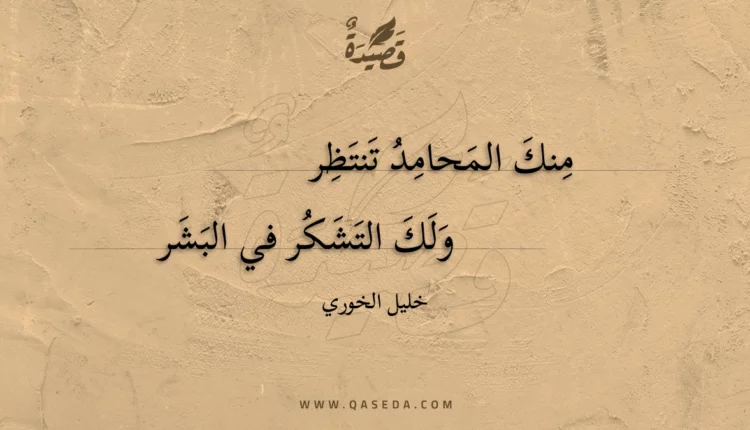 قَصِيدَةٌ
مِنكَ المَحامِدُ تَنتَظِر
وَلَكَ التَشَكُر في البَشَر
خليل الخوري
WWW.QASEDA.COM